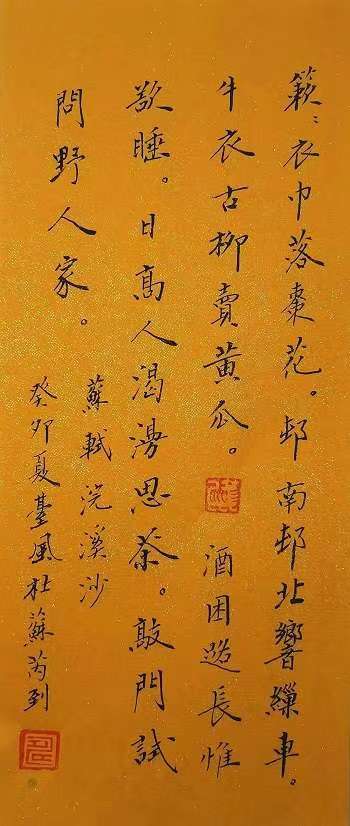 簌〻衣巾落棗花。邨南邨北響繅車。
牛衣古柳賣黃瓜。 酒困路長惟
欲睡。日高人渴漫思茶。敲門試
問野人家。
蘇軾浣溪沙
癸卯夏臺風杜蘇芮到